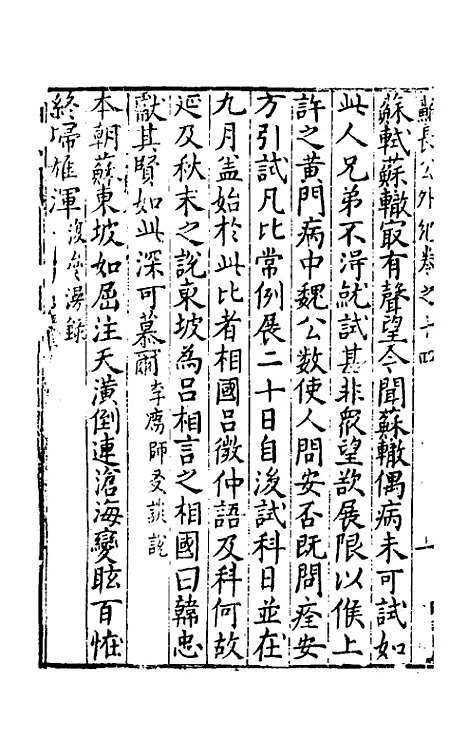 蘇長公外紀卷之十四
蘇軾蘇轍㝡有聲望今聞蘇轍偶病未可試如
此人兄弟不淂就試甚非衆望欲展限以俟上
許之黄門病中魏公數使人問安否既問痊安
方引試凡比常例展二十日自後試科日並在
九月盖始於此比者相國吕微仲語及科何故
延及秋末之説東坡為吕相言之相國曰韓忠
獻其賢如此深可慕爾李廌師友談說
本朝蘇東坡如屈注天潢倒連滄海變眩百恠
終歸雄渾復叅漫錄